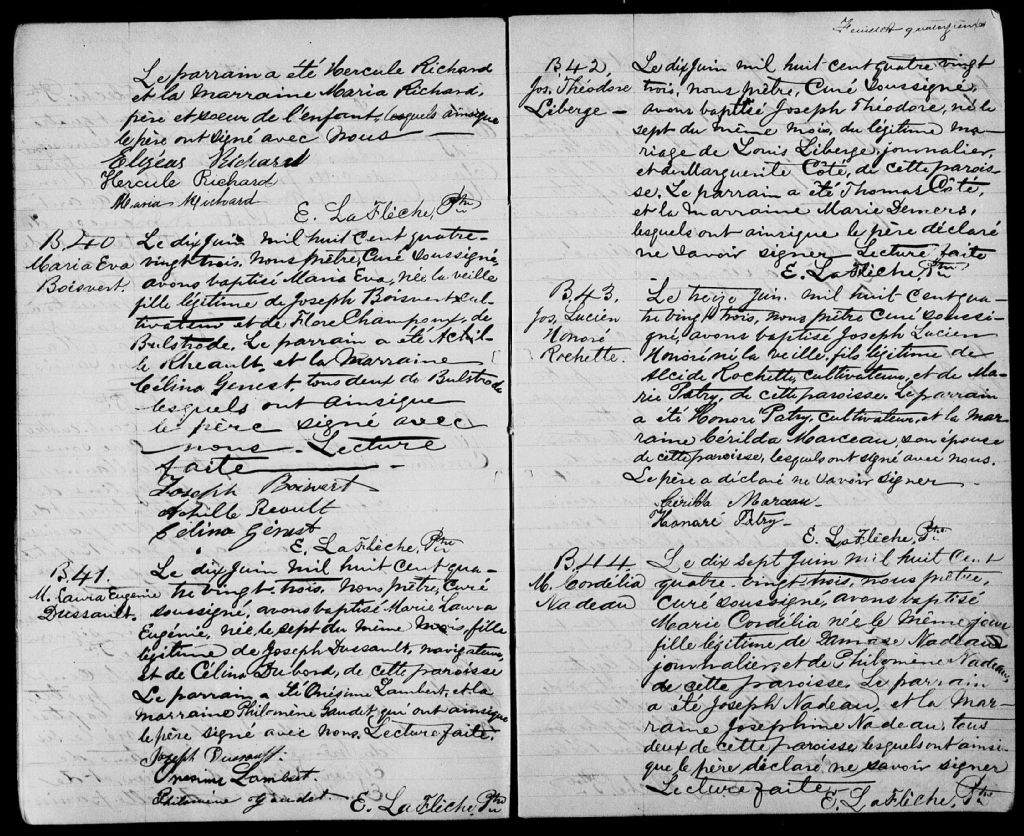 Le parrain a été Hercule Richard
et la marraine Maria Richard,
père et soeur de l'enfant, lesquels ainsique
le père ont signé avec nous
Elizéas Richard
Hercule Richard
Maria Richard
E. LaFlèche, Ptre
B.40
Maria Eva
Boisvert.
Le dix Juin mil huit cent quatre-
vingt trois, nous prêtre, Curé soussigné,
avons baptisé Maria Eva, née la veille
fille légitime de Joseph Boisvert cul-
tivateur et de Flore Champoux, de
Bulstrode. Le parrain a été Achil-
le Rheault, et la Marraine
Célina Génest, tous deux de Bulstrode
lesquels ont ainsique
le père signé avec
nous. Lecture
faite
Joseph Boisvert
Achille Reoult
Célina Génest
E. LaFlèche, Ptre
B.41.
M. Laura Eugénie
Dussault.
Le dix Juin mil huit cent qua-
tre vingt-trois, nous prêtre, Curé
soussigné, avons baptisé Marie Laura
Eugénie, née le sept du même mois, fille
légitime de Joseph Dussault, navigateur,
et de Célina Dubord, de cette paroisse
Le parrain a été Onésime Lambert, et la
marraine Philomène Gaudet qui ont ainsique
le père signé avec nous. Lecture faite.
Joseph Dussault.
Onesime Lambert.
Philomène Gaudet.
E. LaFlèche, Ptre
Feuillet quatorzième
B.42,
Jos. Théodore
Liberge -
Le dix Juin mil huit cent quatre vingt
trois, nous prêtre, Curé soussigné,
avons baptisé Joseph Théodore, né le
sept du même mois, du légitime ma-
riage de Louis Liberge, journalier,
et de Marguerite Côté, de cette parois-
se, Le parrain a été Thomas Côté,
et la marraine Marie Demers,
lesquels ont ainsique le père déclaré
ne savoir signer. Lecture faite
E. LaFlèche, Ptre
B.43.
Jos. Lucien
Honoré
Rochette.
Le treize Juin, mil huit cent qua-
tre vingt trois, nous prêtre curé soussi-
gné, avons baptisé Joseph Lucien
Honoré né la veille, fils légitime de
Alcide Rochette, cultivateur, et de Ma-
rie Patry, de cette paroisse. Le parrain
a été Honoré Patry, cultivateur, et la mar
raine Cérilda Marceau, son épouse
de cette paroisse, lesquels ont signé avec nous.
Le père a déclaré ne savoir signer
Cérilda Marceau
Honoré Patry
E. LaFlèche, Ptre
B.44.
M. Cordélia
Nadeau
Le dix sept Juin mil huit cent
quatre-vingt trois, nous prêtre,
Curé soussigné, avons baptisé
Marie Cordélia née le même jour
fille légitime de Damase Nadeau
journalier, et de Philomène Nadeau,
de cette paroisse. Le parrain
a été Joseph Nadeau, et la Mar-
raine Josephine Nadeau, tous
deux de cette paroisse, lesquels ont ainsi-
que le père déclaré ne savoir signer
Lecture faite
E. LaFlèche, Ptre